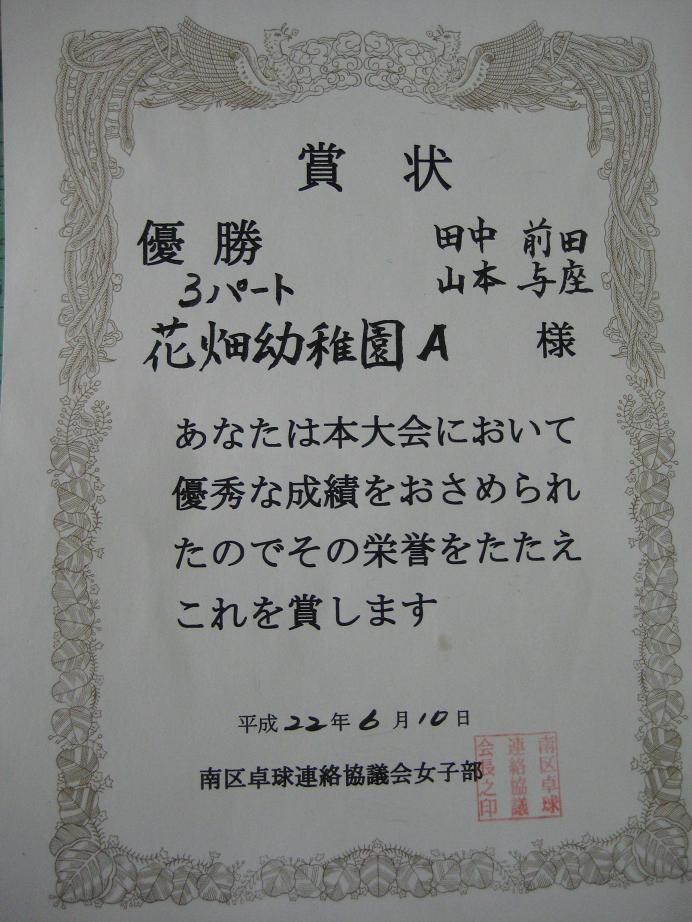 賞 状
優 勝
田中 前田
山本 与座
3パート
花畑幼稚園A 様
あなたは本大会において
優秀な成績をおさめられ
たのでその栄誉をたたえ
これを賞します
平成22年6月10日
南区卓球連絡協議会女子部
南区卓球
連絡協議
会長之印